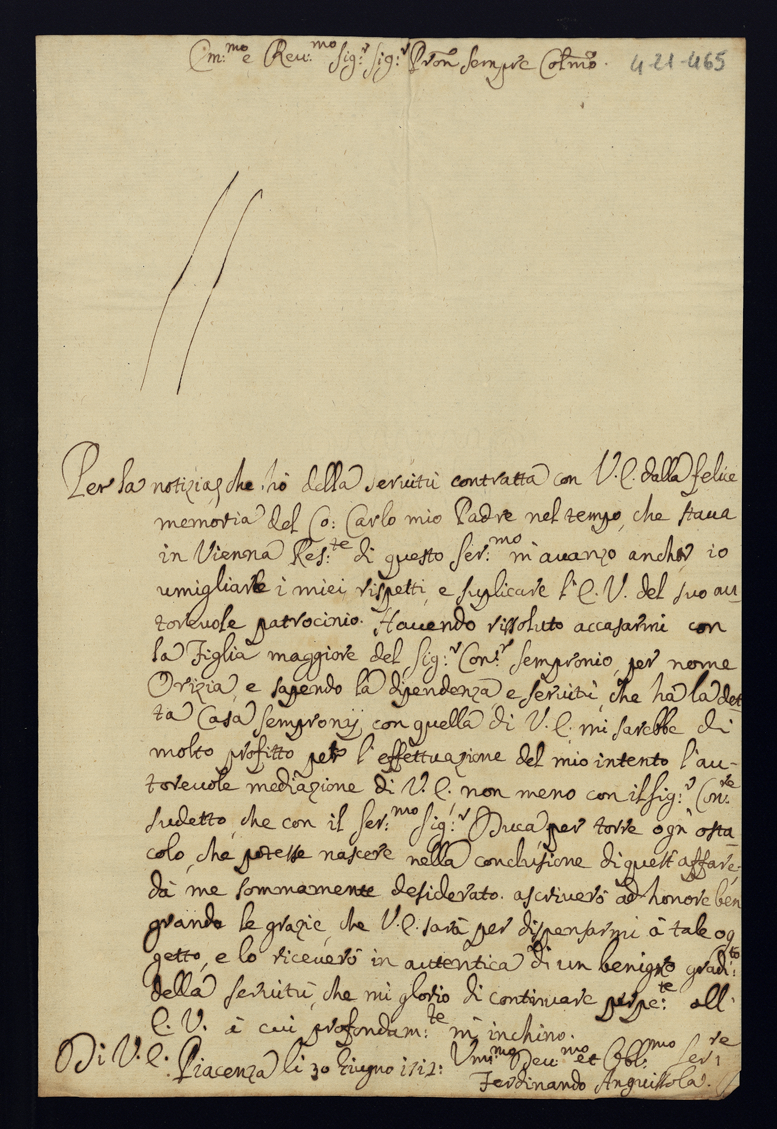 Em:mo e Reu:mo Sig:r Sig:r Pron Sempre Colmo. 4-21-465
Per la notizia, che hò della seruitù contratta con V.E. dalla felice
memoria del Co: Carlo mio Padre nel tempo, che staua
in Vienna Res:te di questo Ser:mo m'auanzo anch'io
umigliarle i miei rispetti, e suplicare l'E.V. del suo au
toreuole patrocinio. Hauendo rissoluto accasarmi con
la Figlia maggiore del Sig:r Con:r Sempronio, per nome
Orizia, e sapendo la dipendenza e seruitù, che hà la det
ta Casa Sempronij, con quella di V.E. mi sarebbe di
molto profitto per l'effettuazione del mio intento l'au-
toreuole mediazione di V.E. non meno con il Sig:r Con:re
sudetto, che con il Ser:mo Sig:r Duca per torre ogn'osta
colo, che potesse nascere nella conclusione di quest'affare,
da me sommamente desiderato. ascriuerò ad honore ben
grande le grazie, che V.E. sarà per dispensarmi à tale og
getto, e lo riceuerò in autentica di un benigno gradi:to
della seruitù, che mi glorio di continuare perpe:te all'
E.V. à cui profondam:te m'inchino.
Di V.E. Piacenza li 30 Giugno 1712: Vmi:mo Deu:mo et Obbl:mo Ser:re
Ferdinando Anguissola.